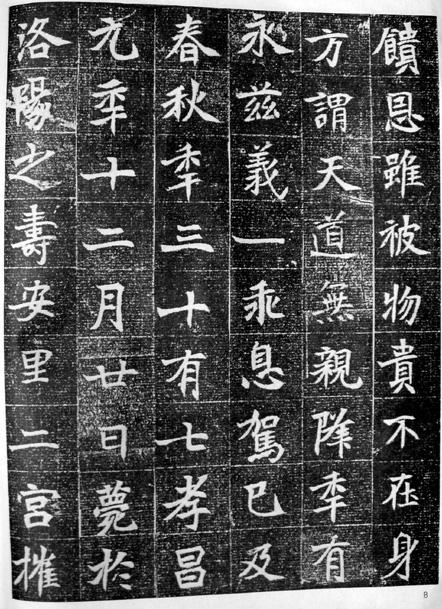 饋恩雖被物貴不在身
方謂天道無親降秊有
永茲義一乖息駕已及
春秋秊三十有七孝昌
元秊十二月廿日薨於
洛陽之壽安里二宮摧
8